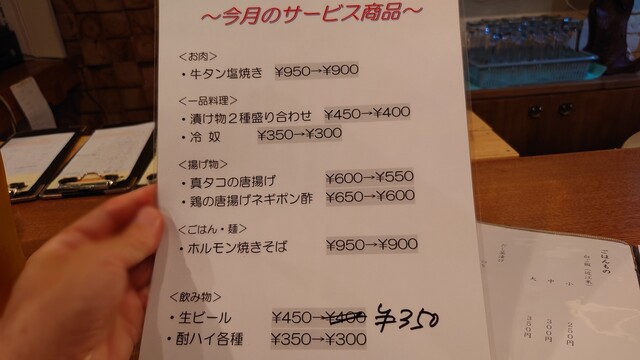 ～今月のサービス商品～
＜お肉＞
・牛タン塩焼き ¥950→¥900
＜一品料理＞
・漬け物２種盛り合わせ ¥450→¥400
・冷 奴 ¥350→¥300
＜揚げ物＞
・真タコの唐揚げ ¥600→¥550
・鶏の唐揚げネギポン酢 ¥650→¥600
＜ごはん・麺＞
・ホルモン焼きそば ¥950→¥900
＜飲み物＞
・生ビール ¥450→¥400 ¥350
・酎ハイ各種 ¥350→¥300
ごはんもの
小 250円
中 300円
大 350円